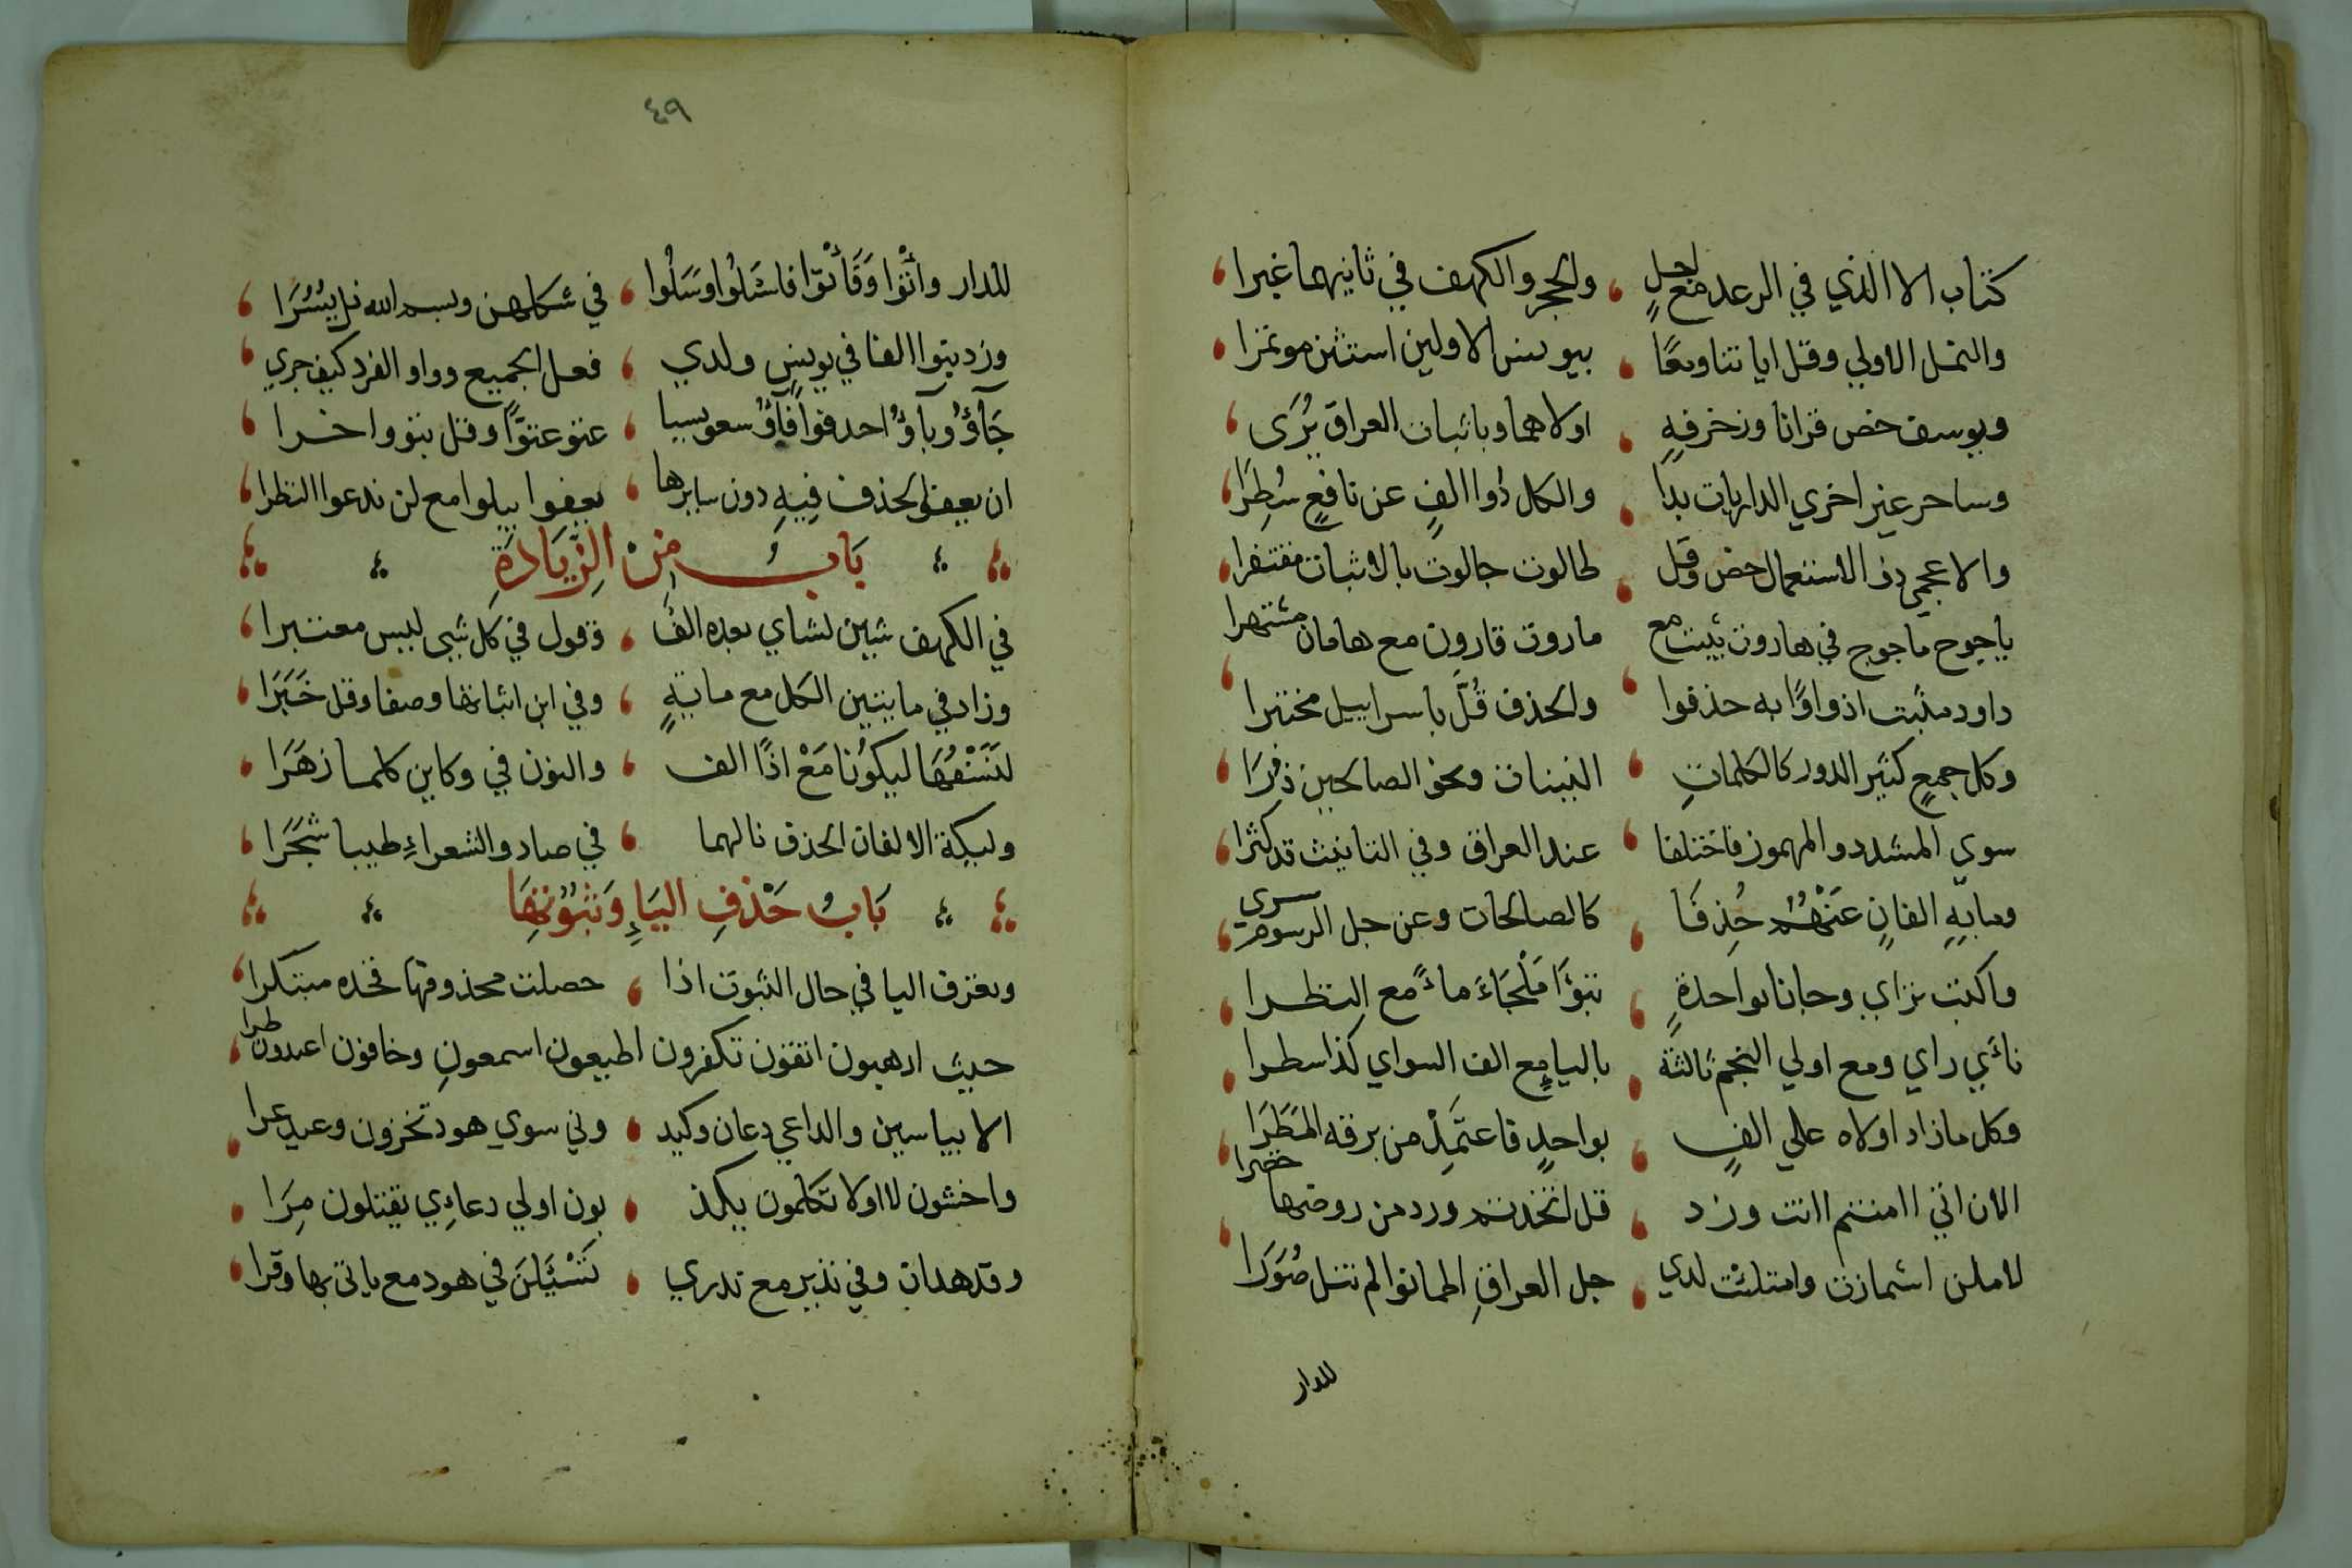 كتاب الا الذي في الرعد مع اجل ، والحجر والكهف في ثانيهما غبرا ،
والنمل الاولي وقل اياتنا ومعًا ، بيونس الاولين استثن موتمرا ،
ويوسف خص قرانا وزخرفهِ ، اولاهما وباثبات العراق يُرَى ،
وساحر غير اخري الداريات بدا ، والكل ذوا الفٍ عن نافعٍ سُطِرَا ،
والاعجمي ذو الاستعمال خص وقل ، طالوت جالوت بالاثبات مفتفرا ،
ياجوج ماجوج في هاروت يثبت مع ، ماروت قارون مع هامان مشتهرا ،
داود مثبت اذ واوًا به حذفوا ، والحذف قُلَّ باسراييل مختبرا
وكل جمعٍ كثير الدور كالكلماتِ ، البينات ونحو الصالحين ذُرَا ،
سوي المشدد والمهموز فاختلفا ، عند العراق وفي التانيث قد كثرا ،
ومابهِ الفانِ عَنْهُمْ حُذِفَا ، كالصالحات وعن جل الرسوم سرى ،
واكتب تراي وجانا بواحدةٍ ، تبوَّا مَلْجَاءً ماءً مع النظرا ،
نائي راي ومع اولي النجم ثالثة ، باليا مع الف السواي كذا سطرا ،
وكل ما زاد اولاه علي الفٍ ، بواحدٍ فاعتمِدْ من برقه المَطَرَا ،
الان اتي اامنتم اانت وزد ، قل اتخذتم ورد من روضها خضرا ،
لاملن اشمازت وامتلئت لدي ، جل العراقِ اطمانوا لم تنل صُوَرَا
للدار
٤٩
للدار وأتوا وَفَأتوا فاسَلُوا وسَلُوا ، في شكلهن وبسم الله نل يُسُرَا ،
وزد بنوا الفا في يونس ولدي ، فعل الجميع وواو الفرد كيف جري ،
جَآؤُ وبآؤُ احذفوا فآؤُ سعو بسبا ، عتو عتوًّا وقل تبوو اخرا ،
ان يعفوا الحذف فيهِ دون سايرها ، يعفوا يبلوا مع لن ندعوا النظرا ،
بَابُ مِنَ الزِّيَادَةِ
في الكهف شين لشاي بعده الفُ ، وقول في كل شيى ليس معتبرا ،
وزاد في مايتين الكل مع مايةٍ ، وفي ابن اثباتها وصفا وقل خَبَرَا ،
لنَسْفَعًا ليكونًا مَعْ اذًا الف ، والنون في وكاين كلها زهَرَا ،
وليكة الالفان الحذف نالهما ، في صاد والشعراءِ طيبا شَجَرَا ،
بَابُ حَذْفِ اليَاءِ وَثبُوْتِهَا
وتعرف اليا في حال الثبوت اذا ، حصلت محذوفها فخذه مبتكرا ،
حيث ارهبون اتقون تكفرون اطيعون اسمعونِ وخافون اعبدون طرا ،
الا بياسين والداعي دعان وكيد ، وني سوي هود تخزون وعيد عرا ،
واخشون لا اولا تكلمون يكذ ، بون اولي دعاءِي يقتلون مِرَا ،
وقد هدان وفي نذير مع تدري ، تَسْئَلَنَ في هود مع ياتي بها وقرا ،